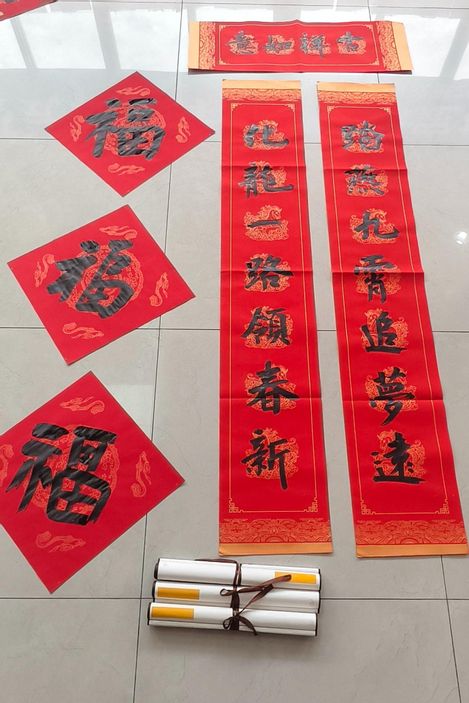 吉祥如意
踏燕九霄追夢遠
化龍一路領春新
福
福
福